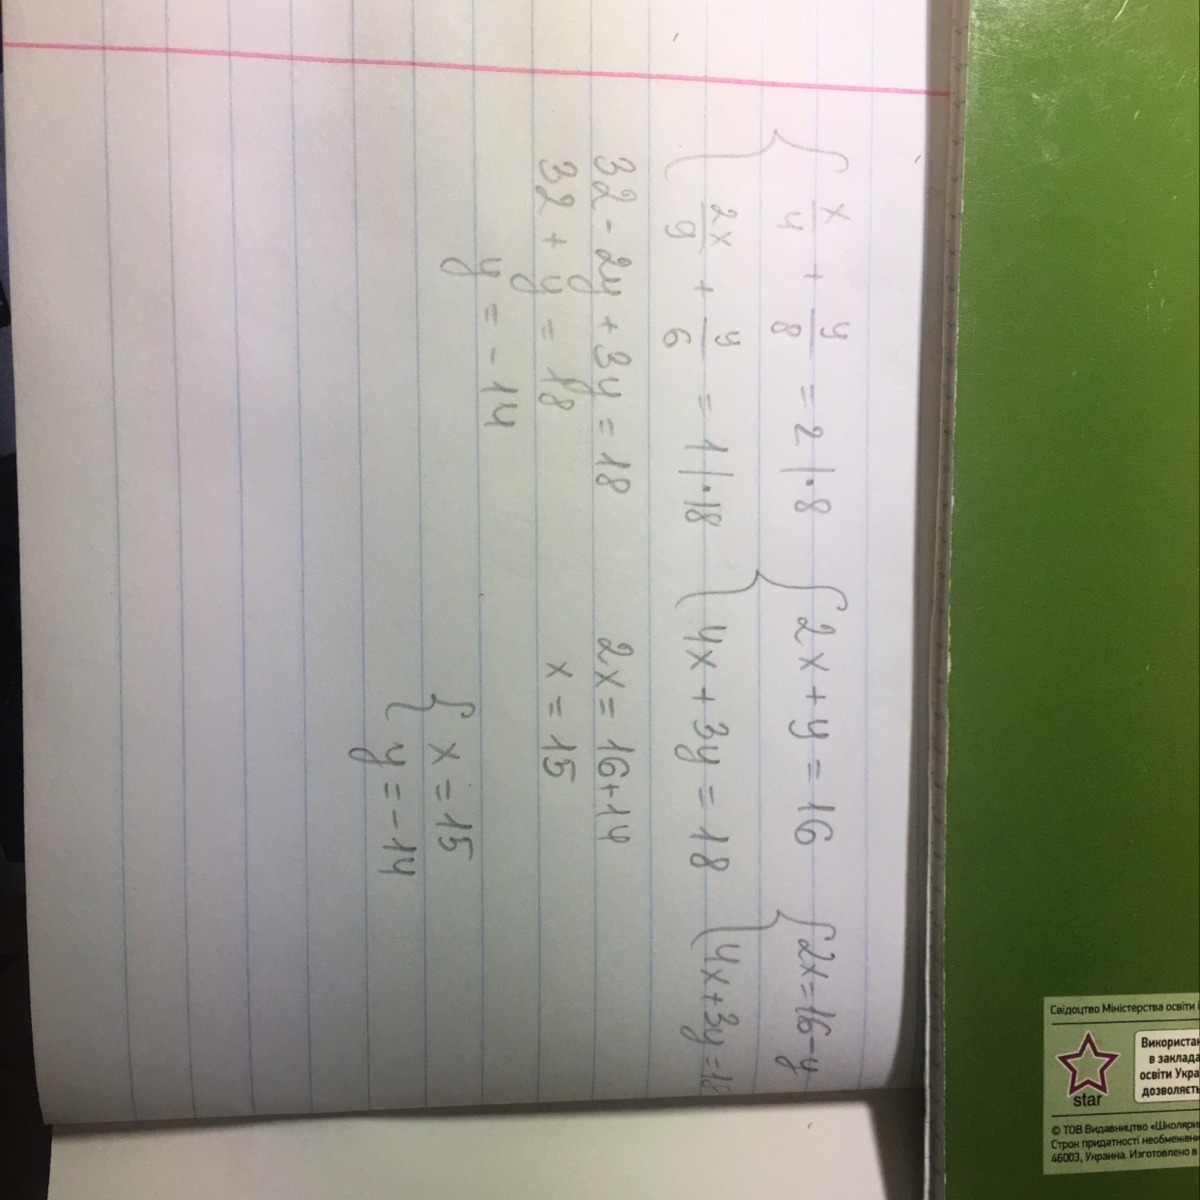 x/4 + y/8 = 2 |·8 { 2x + y = 16 { 2x = 16 - y
2x/9 + y/6 = 1 |·18 4x + 3y = 18 4x + 3y = 18
32 - 2y + 3y = 18 2x = 16 + 14
32 + y = 18 x = 15
y = -14
{ x = 15
y = -14
Свідоцтво Міністерства освіти
star
Використан
в заклада
освіти Укра
дозволяєть
© ТОВ Видавництво «Школярик
Строк придатності необмежени
46003, Украина. Изготовлено в